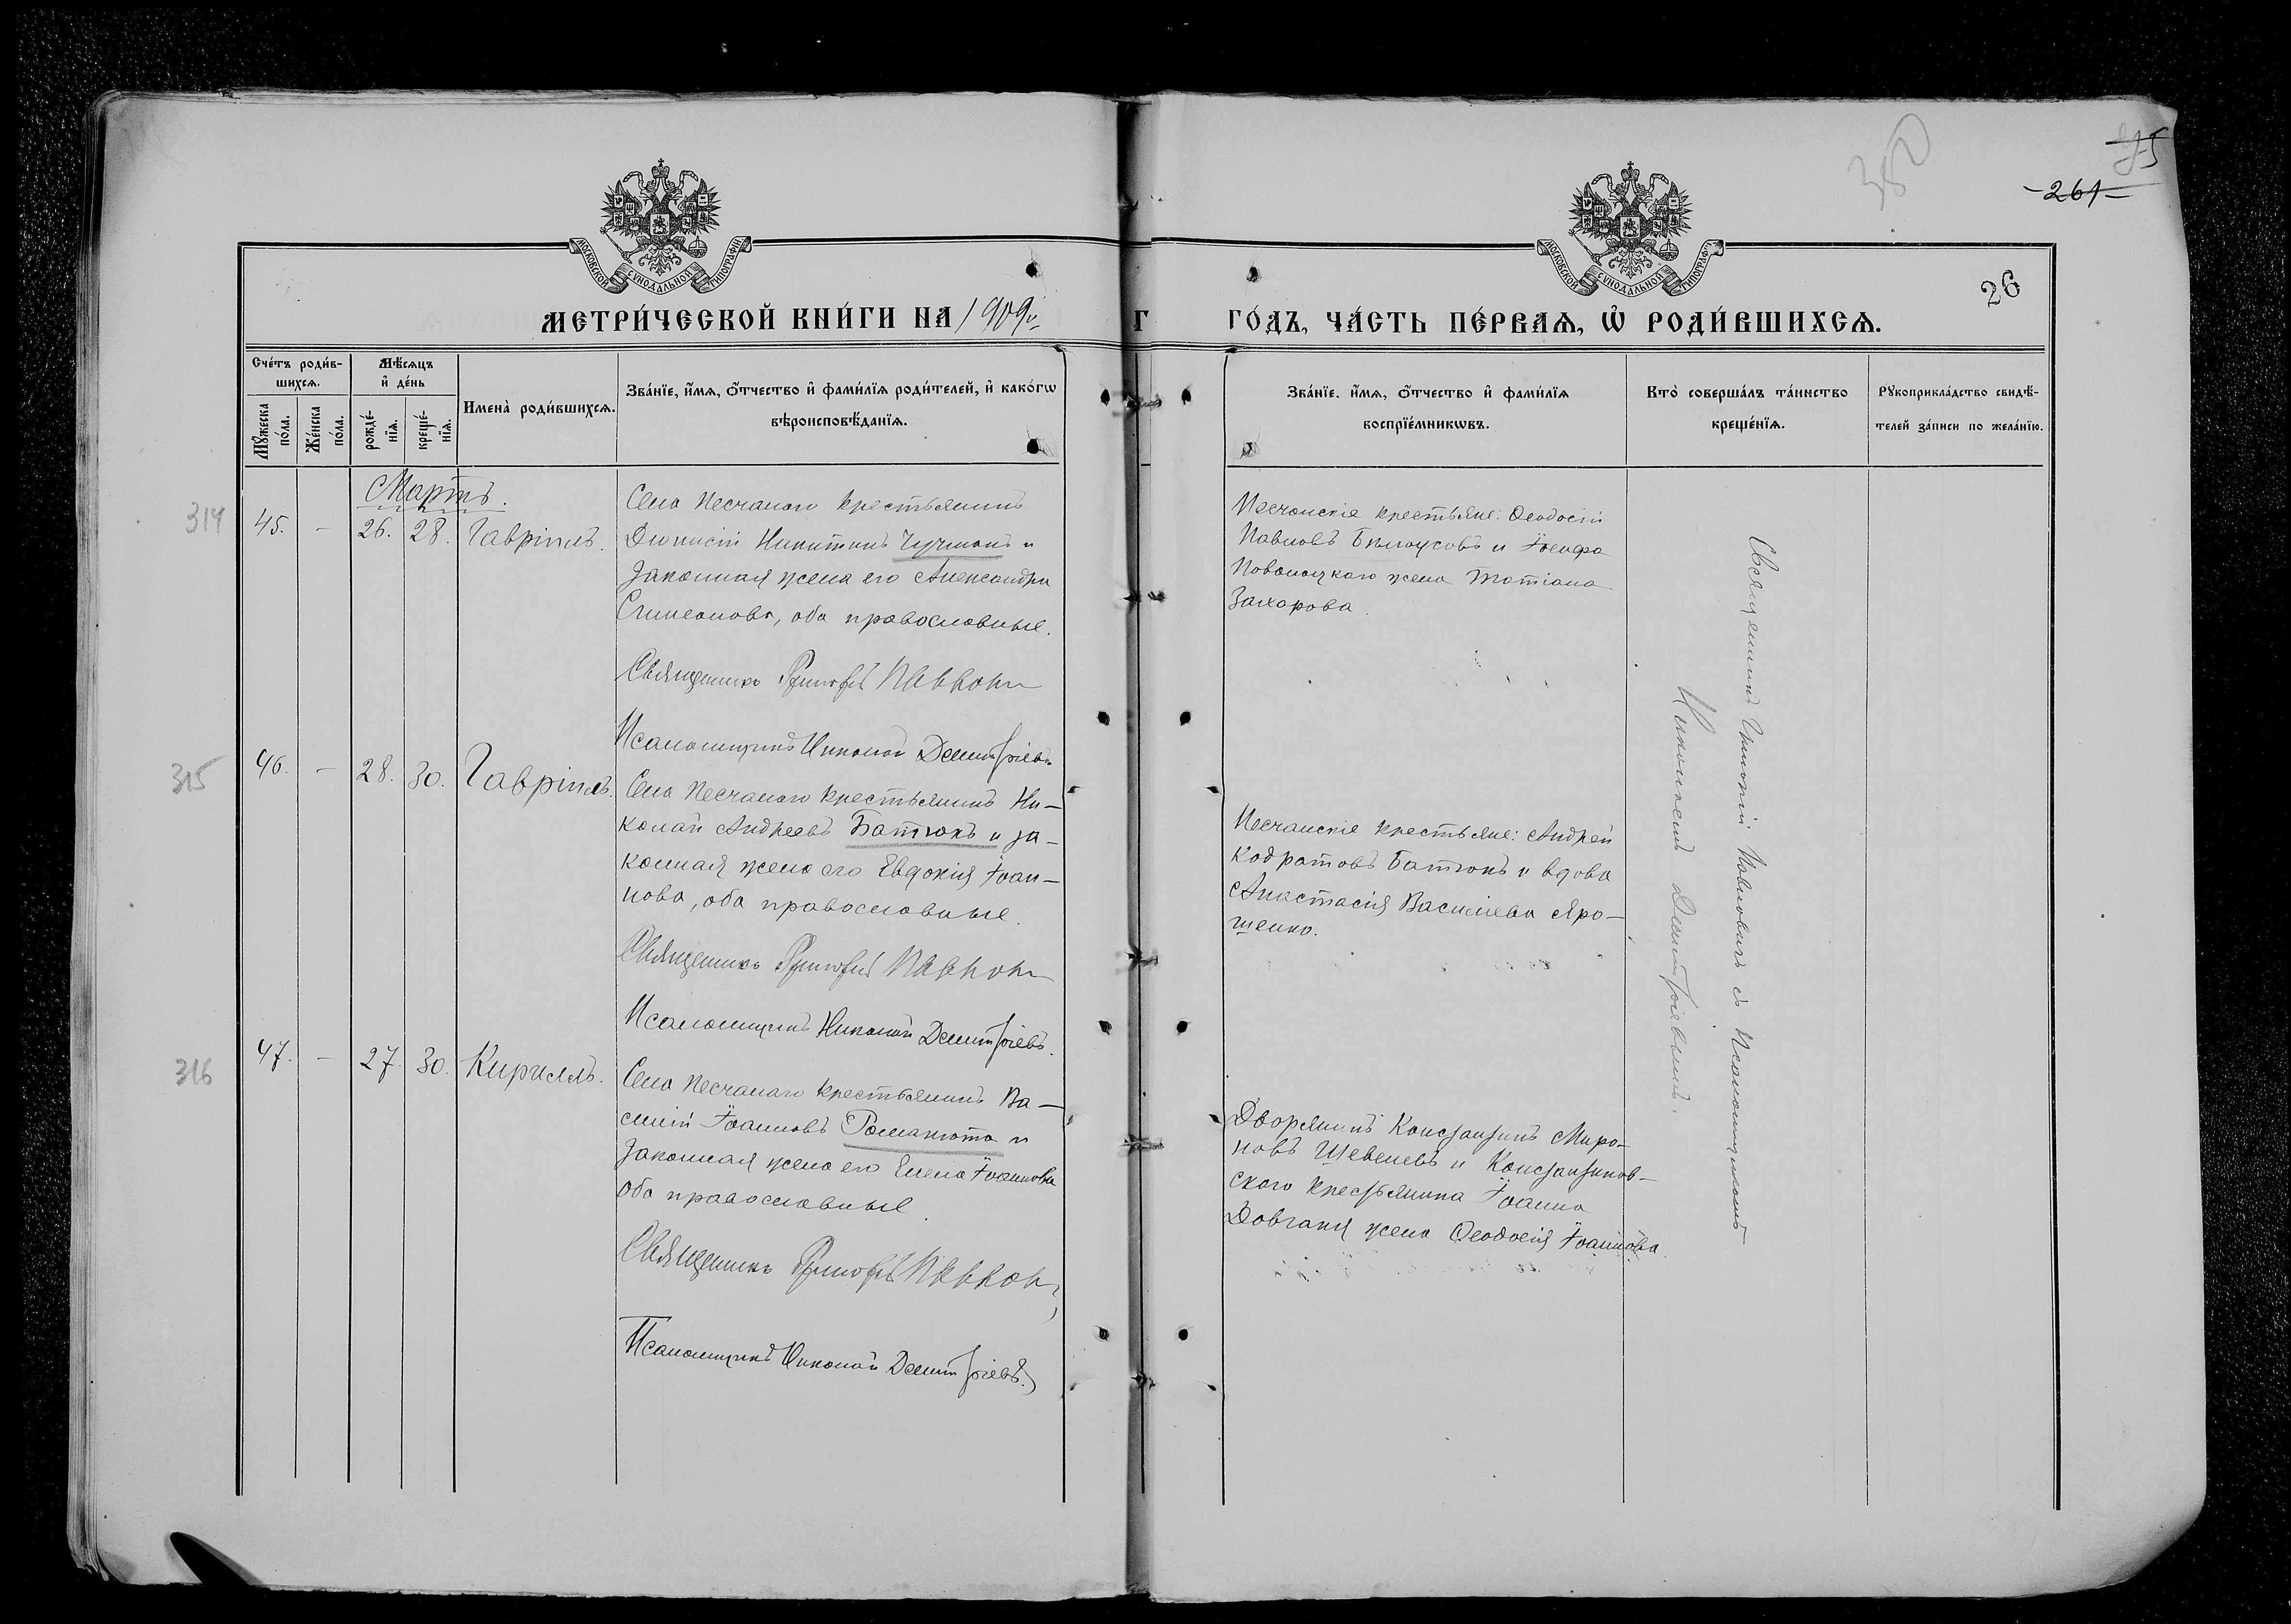 380
261
26
МОСКОВСКОЙ СѴНОДАЛЬНОЙ ТИПОГРАФІИ
МОСКОВСКОЙ СѴНОДАЛЬНОЙ ТИПОГРАФІИ
МЕТРИ́ЧЕСКОЙ КНИ́ГИ НА 1909 г.
ГО́ДЪ, ЧА́СТЬ ПЕ́РВАѦ, Ѡ҆ РОДИ́ВШИХСѦ.
Сче́тъ роди́в-
шихсѧ.
Мꙋ́жеска по́ла.
Же́нска по́ла.
Мѣ́сѧцъ
и҆ де́нь
рожде́-
нїѧ.
креще́-
нїѧ.
Имена̀ роди́вшихсѧ.
Зва́нїе, и҆́мѧ, ѻ҆́тчество и҆ фами́лїѧ роди́телей, и҆ како́гѡ
вѣроисповѣ́данїѧ.
Зва́нїе. и҆́мѧ, ѻ҆́тчество и҆ фами́лїѧ
воспрїе́мникѡвъ.
Кто̀ соверша́лъ та́инство
креще́нїѧ.
Рꙋкоприкла́дство свидѣ́-
телей за́писи по жела́нїю.
Мартъ.
314
45. - 26. 28. Гавріилъ.
Села Песчаного крестьянинъ
Діонисій Никитинъ Чучманъ и
законная жена его Александра
Симеонова, оба православные.
Священникъ Григорій
Псаломщикъ Николай Димитріевъ
Песчанскіе крестьяне: Ѳеодосій
Павловъ Бѣлоусовъ и Іосифа
жена Татіана
Захарова.
315
46. - 28. 30. Гавріилъ.
Села Песчаного крестьянинъ Ни-
колай Андреевъ Батюкъ и за-
конная жена его Евдокія Іоан-
нова, оба православные.
Священникъ Григорій
Псаломщикъ Николай Димитріевъ.
Песчанскіе крестьяне: Андрей
Кодратовъ Батюкъ и вдова
Анастасія Василіева Яро-
шенко.
316
47. - 27. 30. Кириллъ.
Села Песчаного крестьянинъ Ва-
силій Іоанновъ Романюта и
законная жена его Елена Іоаннова
оба православные.
Священникъ Григорій
Псаломщикъ Николай Димитріевъ.
Дворянинъ Константинъ Миро-
новъ Шевелевъ и Константинов-
ского крестьянина Іоанна
Довганя жена Ѳеодосія Іоаннова.
Священникъ Григорій съ Псаломщикомъ
Николаемъ Димитріевымъ.